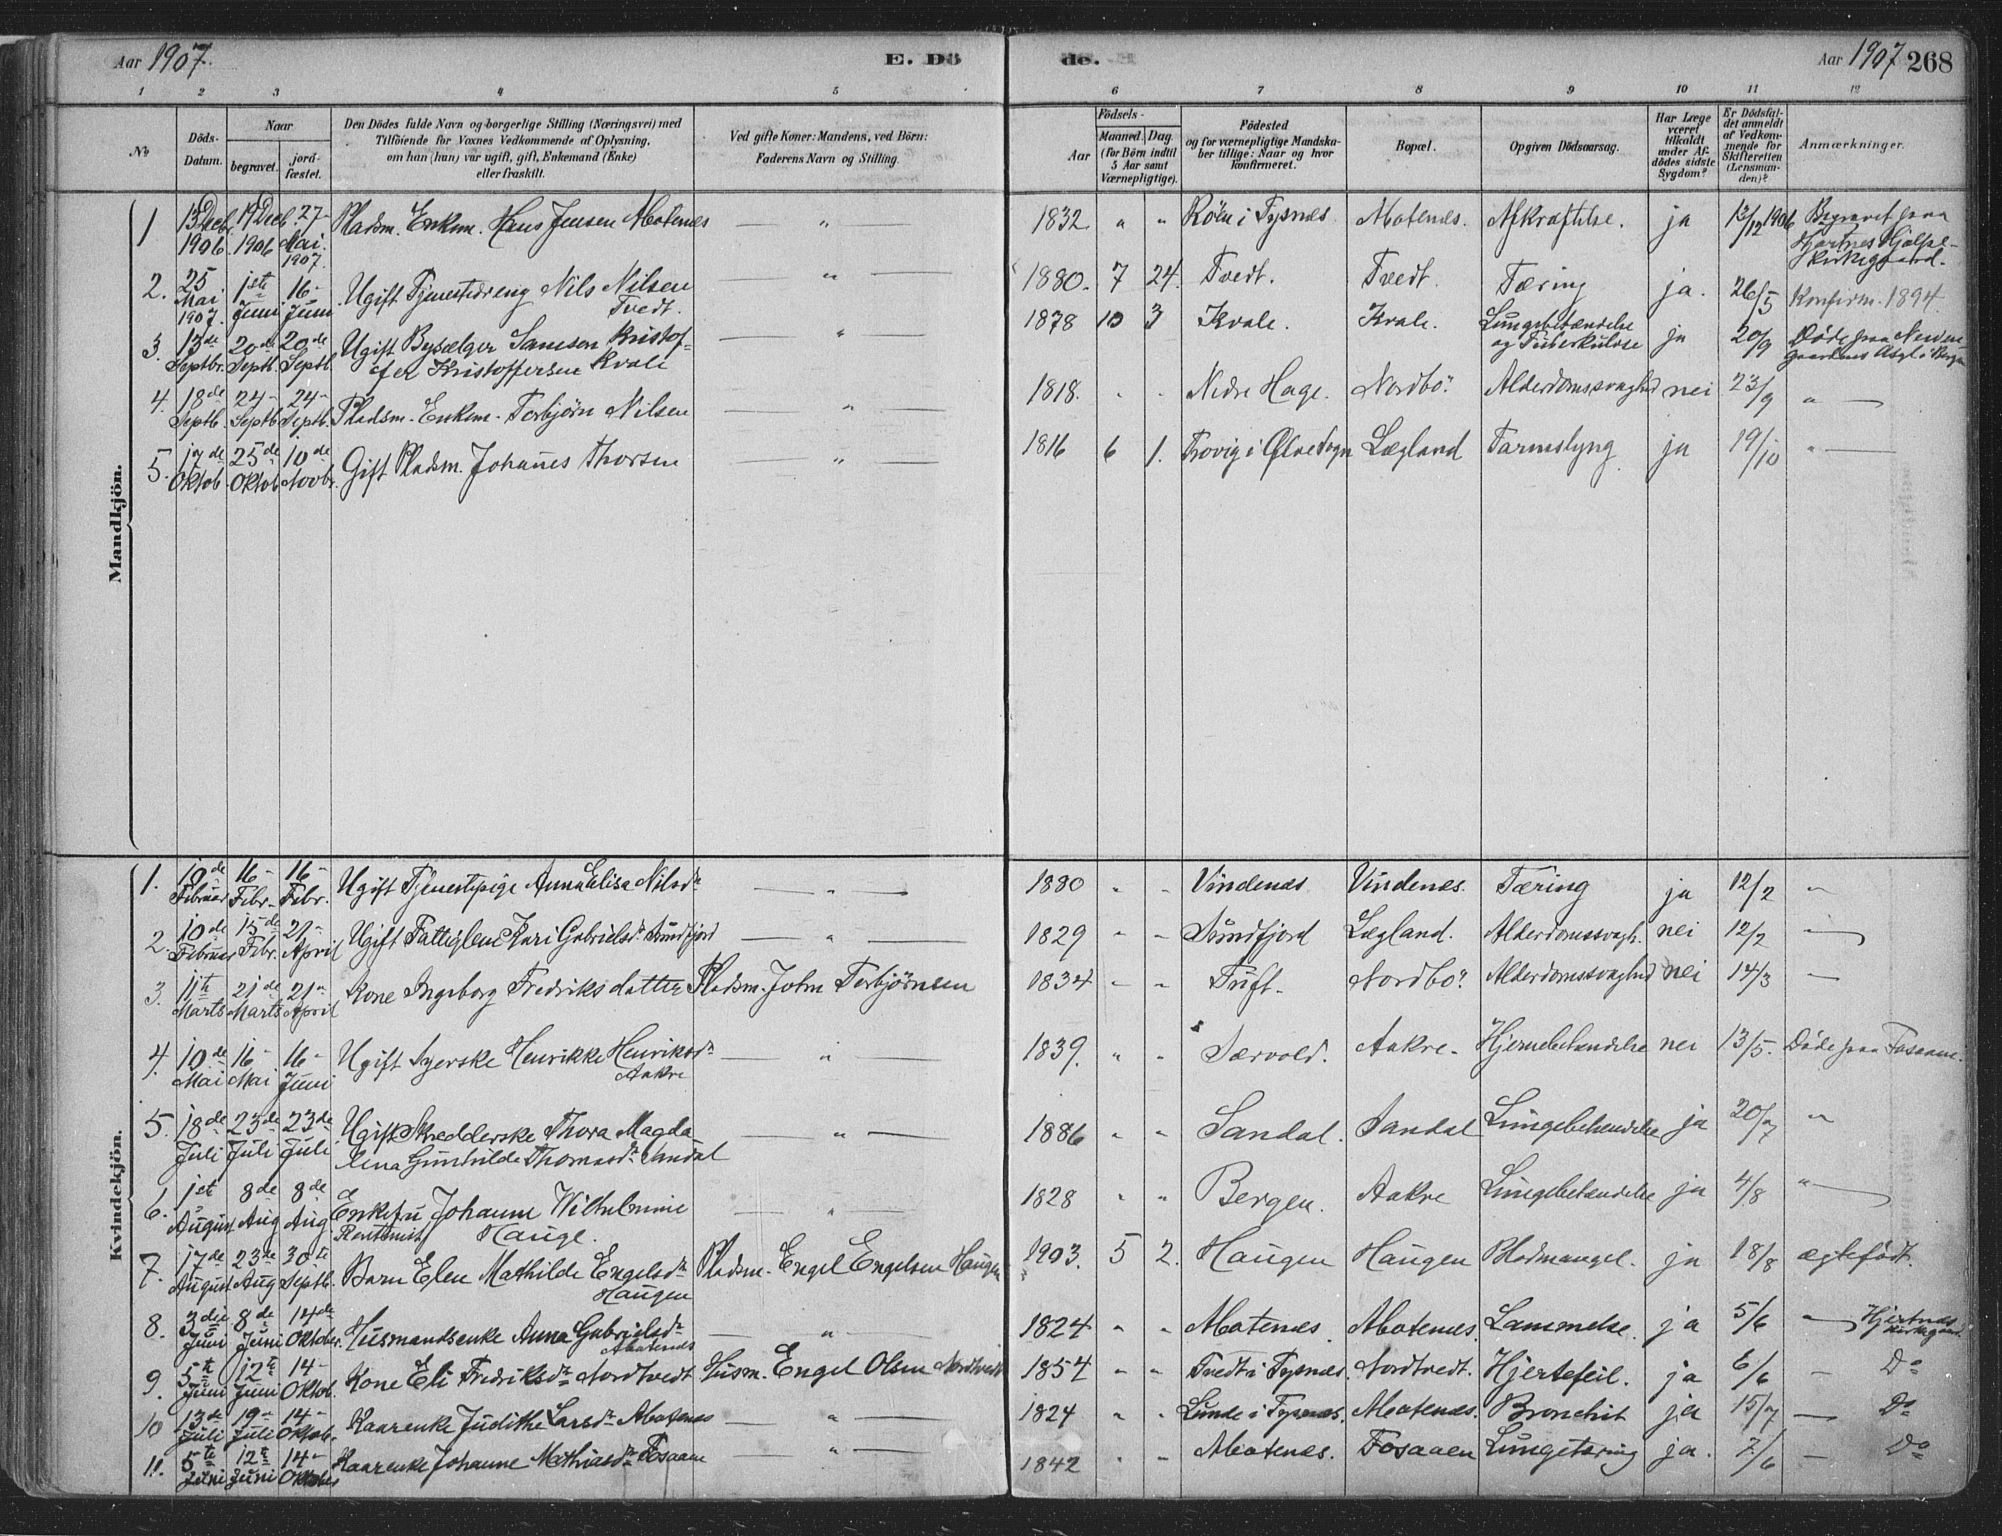 Aar 1907.
E. Dö
de.
Aar 1907
268
1 2 3 4 5
6 7 8 9 10 11 12
No
Döds-
Datum.
Naar
begravet.
jord-
fæstet.
Den Dödes fulde Navn og borgerlige Stilling (Næringsvei) med
Tilföiende for Voxnes Vedkommende af Oplysning,
om han (hun) var ugift, gift, Enkemand (Enke)
eller fraskilt.
Ved gifte Koner: Mandens, ved Börn:
Faderens Navn og Stilling.
Födsels-
Aar
Maaned. Dag.
(for Börn indtil
5 Aar samt
Værnepligtige).
Födested
og for værnepligtige Mandska-
ber tillige: Naar og hvor
konfirmeret.
Bopæl.
Opgiven Dödsaarsag.
Har Læge
været
tilkaldt
under Af-
dødes sidste
Sygdom?
Er Dödsfal-
det anmeldt
af Vedkom-
mende for
Skifteretten
(Lensman-
den)?
Anmærkninger.
Mandkjön.
1 13 Decbr. 1906 19 Decb. 1906 27- Mai. 1907. Pladsm. Enkem. Hans Jensen " 1832. " " i Tysnes Afkræftelse. ja 13/12 1906 Begravet paa
Hjertnes Hjælpe-
kirkegaard.
2. 25 Mai 1907. 1ste Juni 16- Juni Ugift Tjenestedreng Nils Nilsen
Tvedt. " 1880. 7 24. Tvedt. Tvedt. Tæring ja. 26/5 Konfirm. 1894.
3. 13de Septbr. 20de Septb. 20de Septb. Ugift Bysælger Samson Kristof-
fer Kristoffersen Kvale " 1878 10 3 Kvale. Kvale. Lungebetændelse
og Tuberkulose ja 20/9 Döde paa
4. 18de Septb. 24- Septb 24- Septb. Pladsm. Enkem. Torbjörn Nilsen " 1818. - - Nedre Hage. Nordbö. Alderdomssvaghed nei 23/9 "
5. 17de Oktob. 25de Oktob 10de Novbr. Gift Pladsm. Johannes Thorsen " 1816 6 1. i Ølve Sogn Lægland Tarmslyng ja 19/10 "
Kvindekjön.
1. 10de Februar 16- Febr. 16- Febr. Ugift Tjenestepige Anna Elisa Nilsdr " 1880 " - Vindenæs Vindenæs. Tæring ja 12/2 "
2. 10de Februar 15de Febr. 21- April Ugift Fattiglem Kari Gabrielsdr. Sundfjord " 1829 - - Sundfjord Lægland. Alderdomssvagh. nei 12/2 "
3. 11te Marts 21de Marts 21- April Kone Ingeborg Fredriksdatter Pladsm. John Torbjörnsen 1834 - - Tuft. Nordbö. Alderdomssvaghed nei 14/3 -
4. 10de Mai 16- Mai. 16- Juni Ugift Syerske Henrikke Henriksdr
Aakre " 1839. " " Særvold. Aakre. Hjernebetændelse nei 13/5. Döde paa Fosaaen.
5. 18de Juli 23de Juli 23de Juli Ugift Skredderske Thora Magda
Gunhilde Thomasdr Sandal " 1886 - - Sandal. Sandal Lungebetændelse ja 20/7 "
6. 1ste August 8de Aug 8de Aug. Enkefru Johanne Wilhelmine
Hauge. " 1828 " " Bergen. Aakre Lungebetændelse ja 4/8 "
7. 17de August 23de Aug 30te Septb. Barn Elen Mathilde Engelsdr
Haugen Pladsm. Engel Engelsen Haugen 1903. 5 2. Haugen Haugen Blodmangel. ja 18/8 ægtefødt.
8. 3die Juni 8de Juni 14de Oktober. Husmandsenke Anna Gabrielsdr " 1824 " " Lammelse. ja 5/6 Hjertnes
Kirkegaard.
9. 5te Juni 12te Juni 14- Oktob. Kone Eli Fredriksdr Nordtvedt Husm. Engel Olsen Nordtvedt 1854 " " Tvedt i Tysnes. Nordtvedt. Hjertefeil. ja 6/6 - Do
10 13de Juli 19- Juli 14- Oktob. Kaarenke Judithe Larsdr " 1824 " " Lunde i Tysnes. Bronchit ja 15/7 - Do
11. 5te Juni 12te Juni 14- Oktober Kaarenke Johanne Mathiasdr Fosaaen " 1842 " " Fosaaen Lungetæring ja. 7/6 - Do